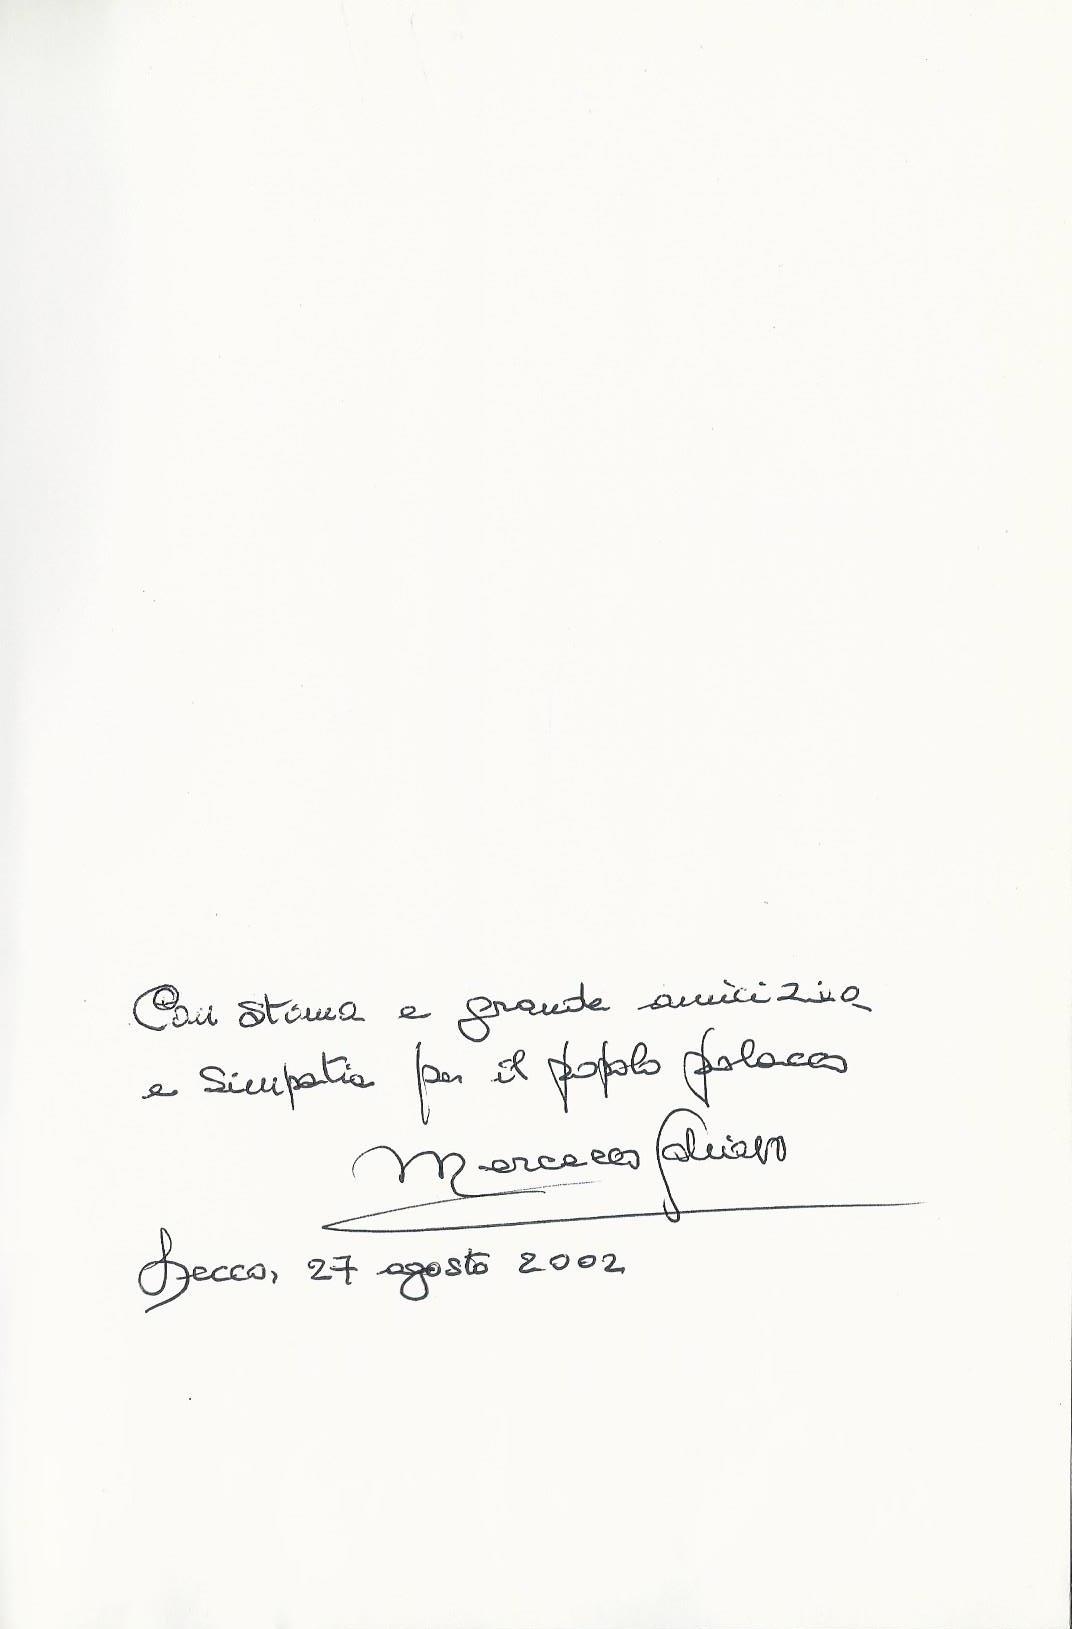 Con stima e grande amicizia
e simpatia per il popolo polacco
Lecco, 27 agosto 2002